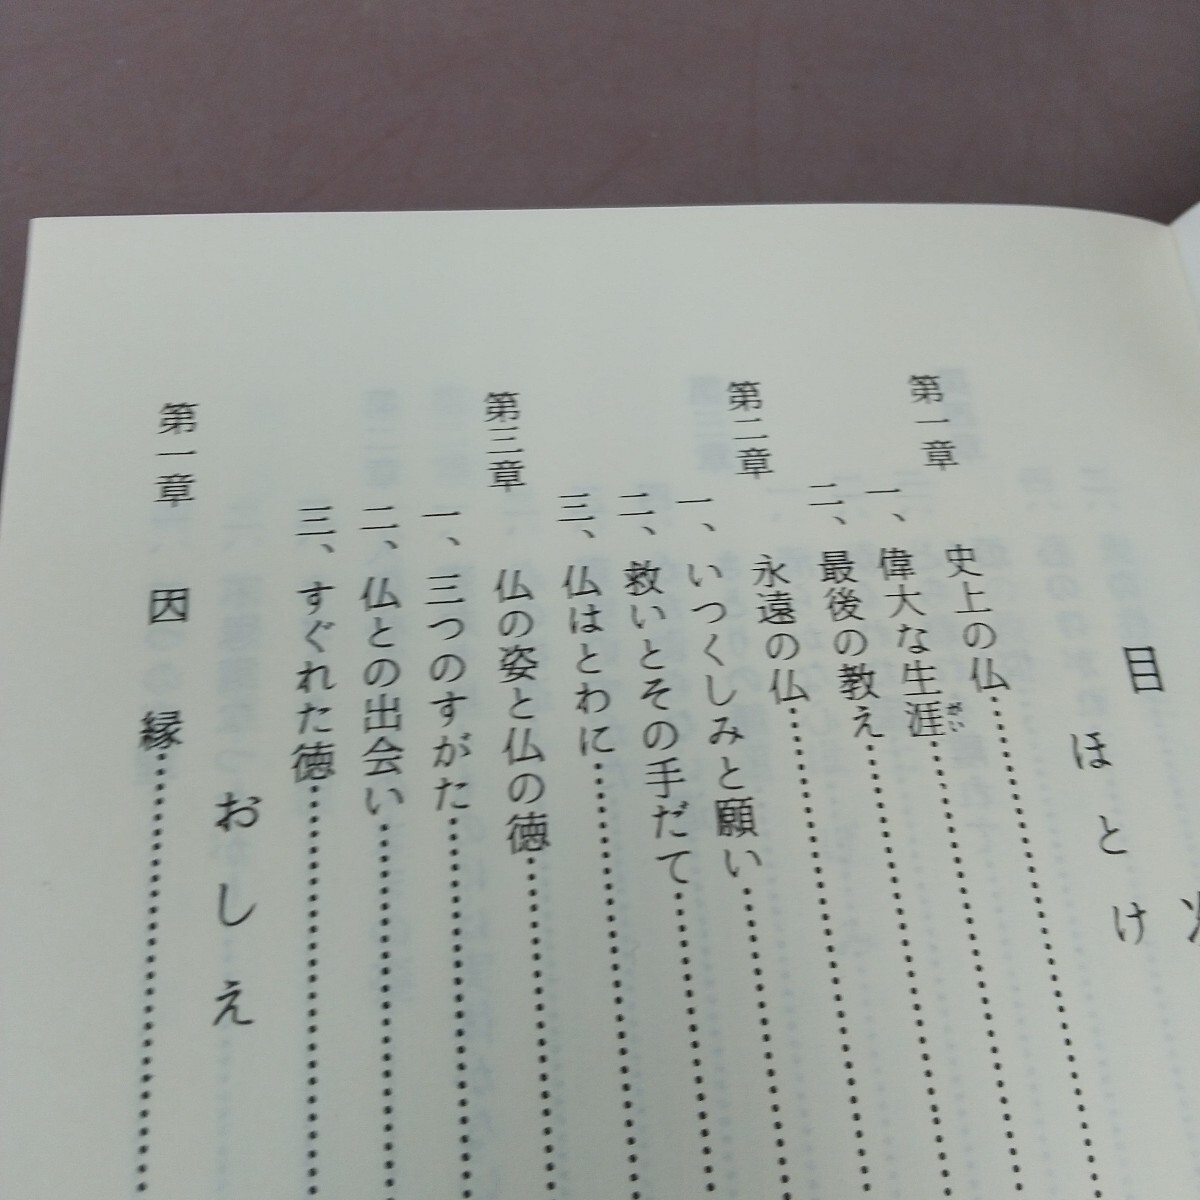 目次
ほとけ
第一章 史上の仏
一、偉大な生涯
がい
二、最後の教え
第二章 永遠の仏
一、いつくしみと願い
二、救いとその手だて
三、仏はとわに
第三章 仏の姿と仏の徳
一、三つのすがた
二、仏との出会い
三、すぐれた徳
おしえ
第一章 因縁